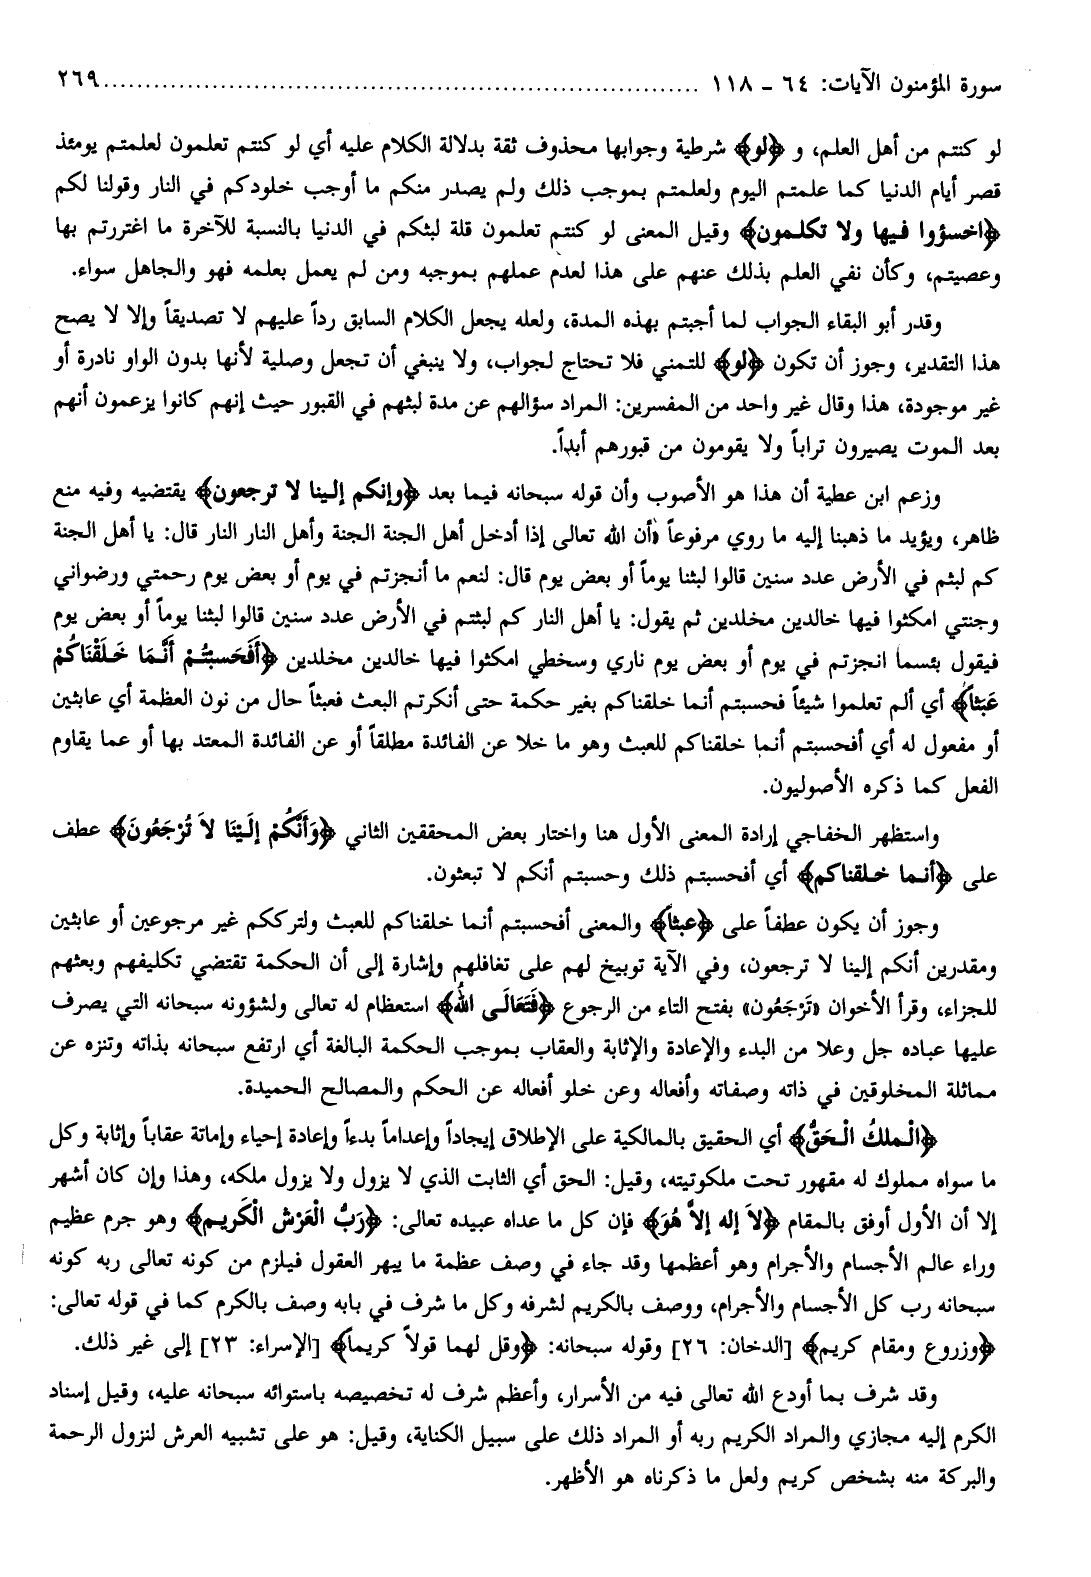 سورة المؤمنون الآيات: ٦٤ ـ ١١٨ ........................................................................ ٢٦٩
لو كنتم من أهل العلم، و ﴿لو﴾ شرطية وجوابها محذوف ثقة بدلالة الكلام عليه أي لو كنتم تعلمون لعلمتم يومئذ
قصر أيام الدنيا كما علمتم اليوم ولعلمتم بموجب ذلك ولم يصدر منكم ما أوجب خلودكم في النار وقولنا لكم
﴿اخسؤوا فيها ولا تكلمون﴾ وقيل المعنى لو كنتم تعلمون قلة لبثكم في الدنيا بالنسبة للآخرة ما اغتررتم بها
وعصيتم، وكأن نفي العلم بذلك عنهم على هذا لعدم عملهم بموجبه ومن لم يعمل بعلمه فهو والجاهل سواء.
وقدر أبو البقاء الجواب لما أجبتم بهذه المدة، ولعله يجعل الكلام السابق رداً عليهم لا تصديقاً وإلا لا يصح
هذا التقدير، وجوز أن تكون ﴿لو﴾ للتمني فلا تحتاج لجواب، ولا ينبغي أن تجعل وصلية لأنها بدون الواو نادرة أو
غير موجودة، هذا وقال غير واحد من المفسرين: المراد سؤالهم عن مدة لبثهم في القبور حيث إنهم كانوا يزعمون أنهم
بعد الموت يصيرون تراباً ولا يقومون من قبورهم أبداً.
وزعم ابن عطية أن هذا هو الأصوب وأن قوله سبحانه فيما بعد ﴿وإنكم إلينا لا ترجعون﴾ يقتضيه وفيه منع
ظاهر، ويؤيد ما ذهبنا إليه ما روي مرفوعاً «أن الله تعالى إذا أدخل أهل الجنة الجنة وأهل النار النار قال: يا أهل الجنة
كم لبثم في الأرض عدد سنين قالوا لبثنا يوماً أو بعض يوم قال: لنعم ما أنجزتم في يوم أو بعض يوم رحمتي ورضواني
وجنتي امكثوا فيها خالدين مخلدين ثم يقول: يا أهل النار كم لبثتم في الأرض عدد سنين قالوا لبثنا يوماً أو بعض يوم
فيقول بئسما انجزتم في يوم أو بعض يوم ناري وسخطي امكثوا فيها خالدين مخلدين ﴿أَفَحَسِبتُـمْ أَنَّـمَا خَـلَقْنَاكُمْ
عَبَثاً﴾ أي ألم تعلموا شيئاً فحسبتم أنما خلقناكم بغير حكمة حتى أنكرتم البعث فعبثاً حال من نون العظمة أي عابثين
أو مفعول له أي أفحسبتم أنما خلقناكم للعبث وهو ما خلا عن الفائدة مطلقاً أو عن الفائدة المعتد بها أو عما يقاوم
الفعل كما ذكره الأصوليون.
واستظهر الخفاجي إرادة المعنى الأول هنا واختار بعض المحققين الثاني ﴿وَأَنَّكُمْ إِلَـيْنَا لاَ تُرْجَعُونَ﴾ عطف
على ﴿أنـما خـلقناكم﴾ أي أفحسبتم ذلك وحسبتم أنكم لا تبعثون.
وجوز أن يكون عطفاً على ﴿عبثاً﴾ والمعنى أفحسبتم أنما خلقناكم للعبث ولترككم غير مرجوعين أو عابثين
ومقدرين أنكم إلينا لا ترجعون، وفي الآية توبيخ لهم على تغافلهم وإشارة إلى أن الحكمة تقتضي تكليفهم وبعثهم
للجزاء، وقرأ الأخوان «تَرْجَعُون» بفتح التاء من الرجوع ﴿فَتَعَالَـى اللهُ﴾ استعظام له تعالى ولشؤونه سبحانه التي يصرف
عليها عباده جل وعلا من البدء والإعادة والإثابة والعقاب بموجب الحكمة البالغة أي ارتفع سبحانه بذاته وتنزه عن
مماثلة المخلوقين في ذاته وصفاته وأفعاله وعن خلو أفعاله عن الحكم والمصالح الحميدة.
﴿الْـملكُ الْـحَقُّ﴾ أي الحقيق بالمالكية على الإطلاق إيجاداً وإعداماً بدءاً وإعادة إحياء وإماتة عقاباً وإثابة وكل
ما سواه مملوك له مقهور تحت ملكوتيته، وقيل: الحق أي الثابت الذي لا يزول ولا يزول ملكه، وهذا وإن كان أشهر
إلا أن الأول أوفق بالمقام ﴿لاَ إله إلاَّ هُوَ﴾ فإن كل ما عداه عبيده تعالى: ﴿رَبُّ الْعَرْشِ الْكَريـم﴾ وهو جرم عظيم
وراء عالم الأجسام والأجرام وهو أعظمها وقد جاء في وصف عظمة ما يبهر العقول فيلزم من كونه تعالى ربه كونه
سبحانه رب كل الأجسام والأجرام، ووصف بالكريم لشرفه وكل ما شرف في بابه وصف بالكرم كما في قوله تعالى:
﴿وزروع ومقام كريم﴾ [الدخان: ٢٦] وقوله سبحانه: ﴿وقل لهما قولاً كريماً﴾ [الإسراء: ٢٣] إلى غير ذلك.
وقد شرف بما أودع الله تعالى فيه من الأسرار، وأعظم شرف له تخصيصه باستوائه سبحانه عليه، وقيل إسناد
الكرم إليه مجازي والمراد الكريم ربه أو المراد ذلك على سبيل الكناية، وقيل: هو على تشبيه العرش لنزول الرحمة
والبركة منه بشخص كريم ولعل ما ذكرناه هو الأظهر.